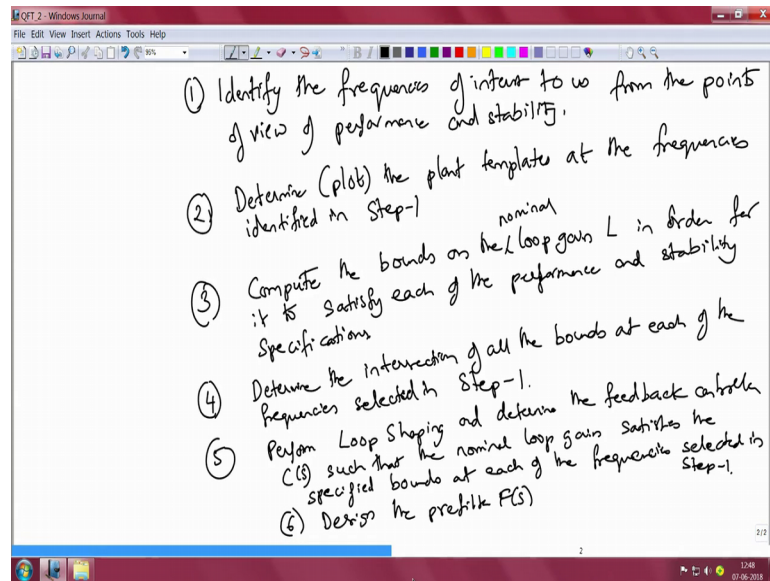 QFT_2 - Windows Journal
File Edit View Insert Actions Tools Help
96%
① Identify the frequencies of interest to us from the points
of view of performance and stability.
② Determine (plot) the plant templates at the frequencies
identified in Step-1
nominal
③ Compute the bounds on the loop gain L in order for
it to satisfy each of the performance and stability
specifications
④ Determine the intersection of all the bounds at each of the
frequencies selected in Step-1.
⑤ Perform Loop Shaping and determine the feedback controller
C(s) such that the nominal loop gain satisfies the
specified bounds at each of the frequencies selected in
Step-1.
⑥ Design the prefilter F(s)
2/2
2
12:48
07-06-2018